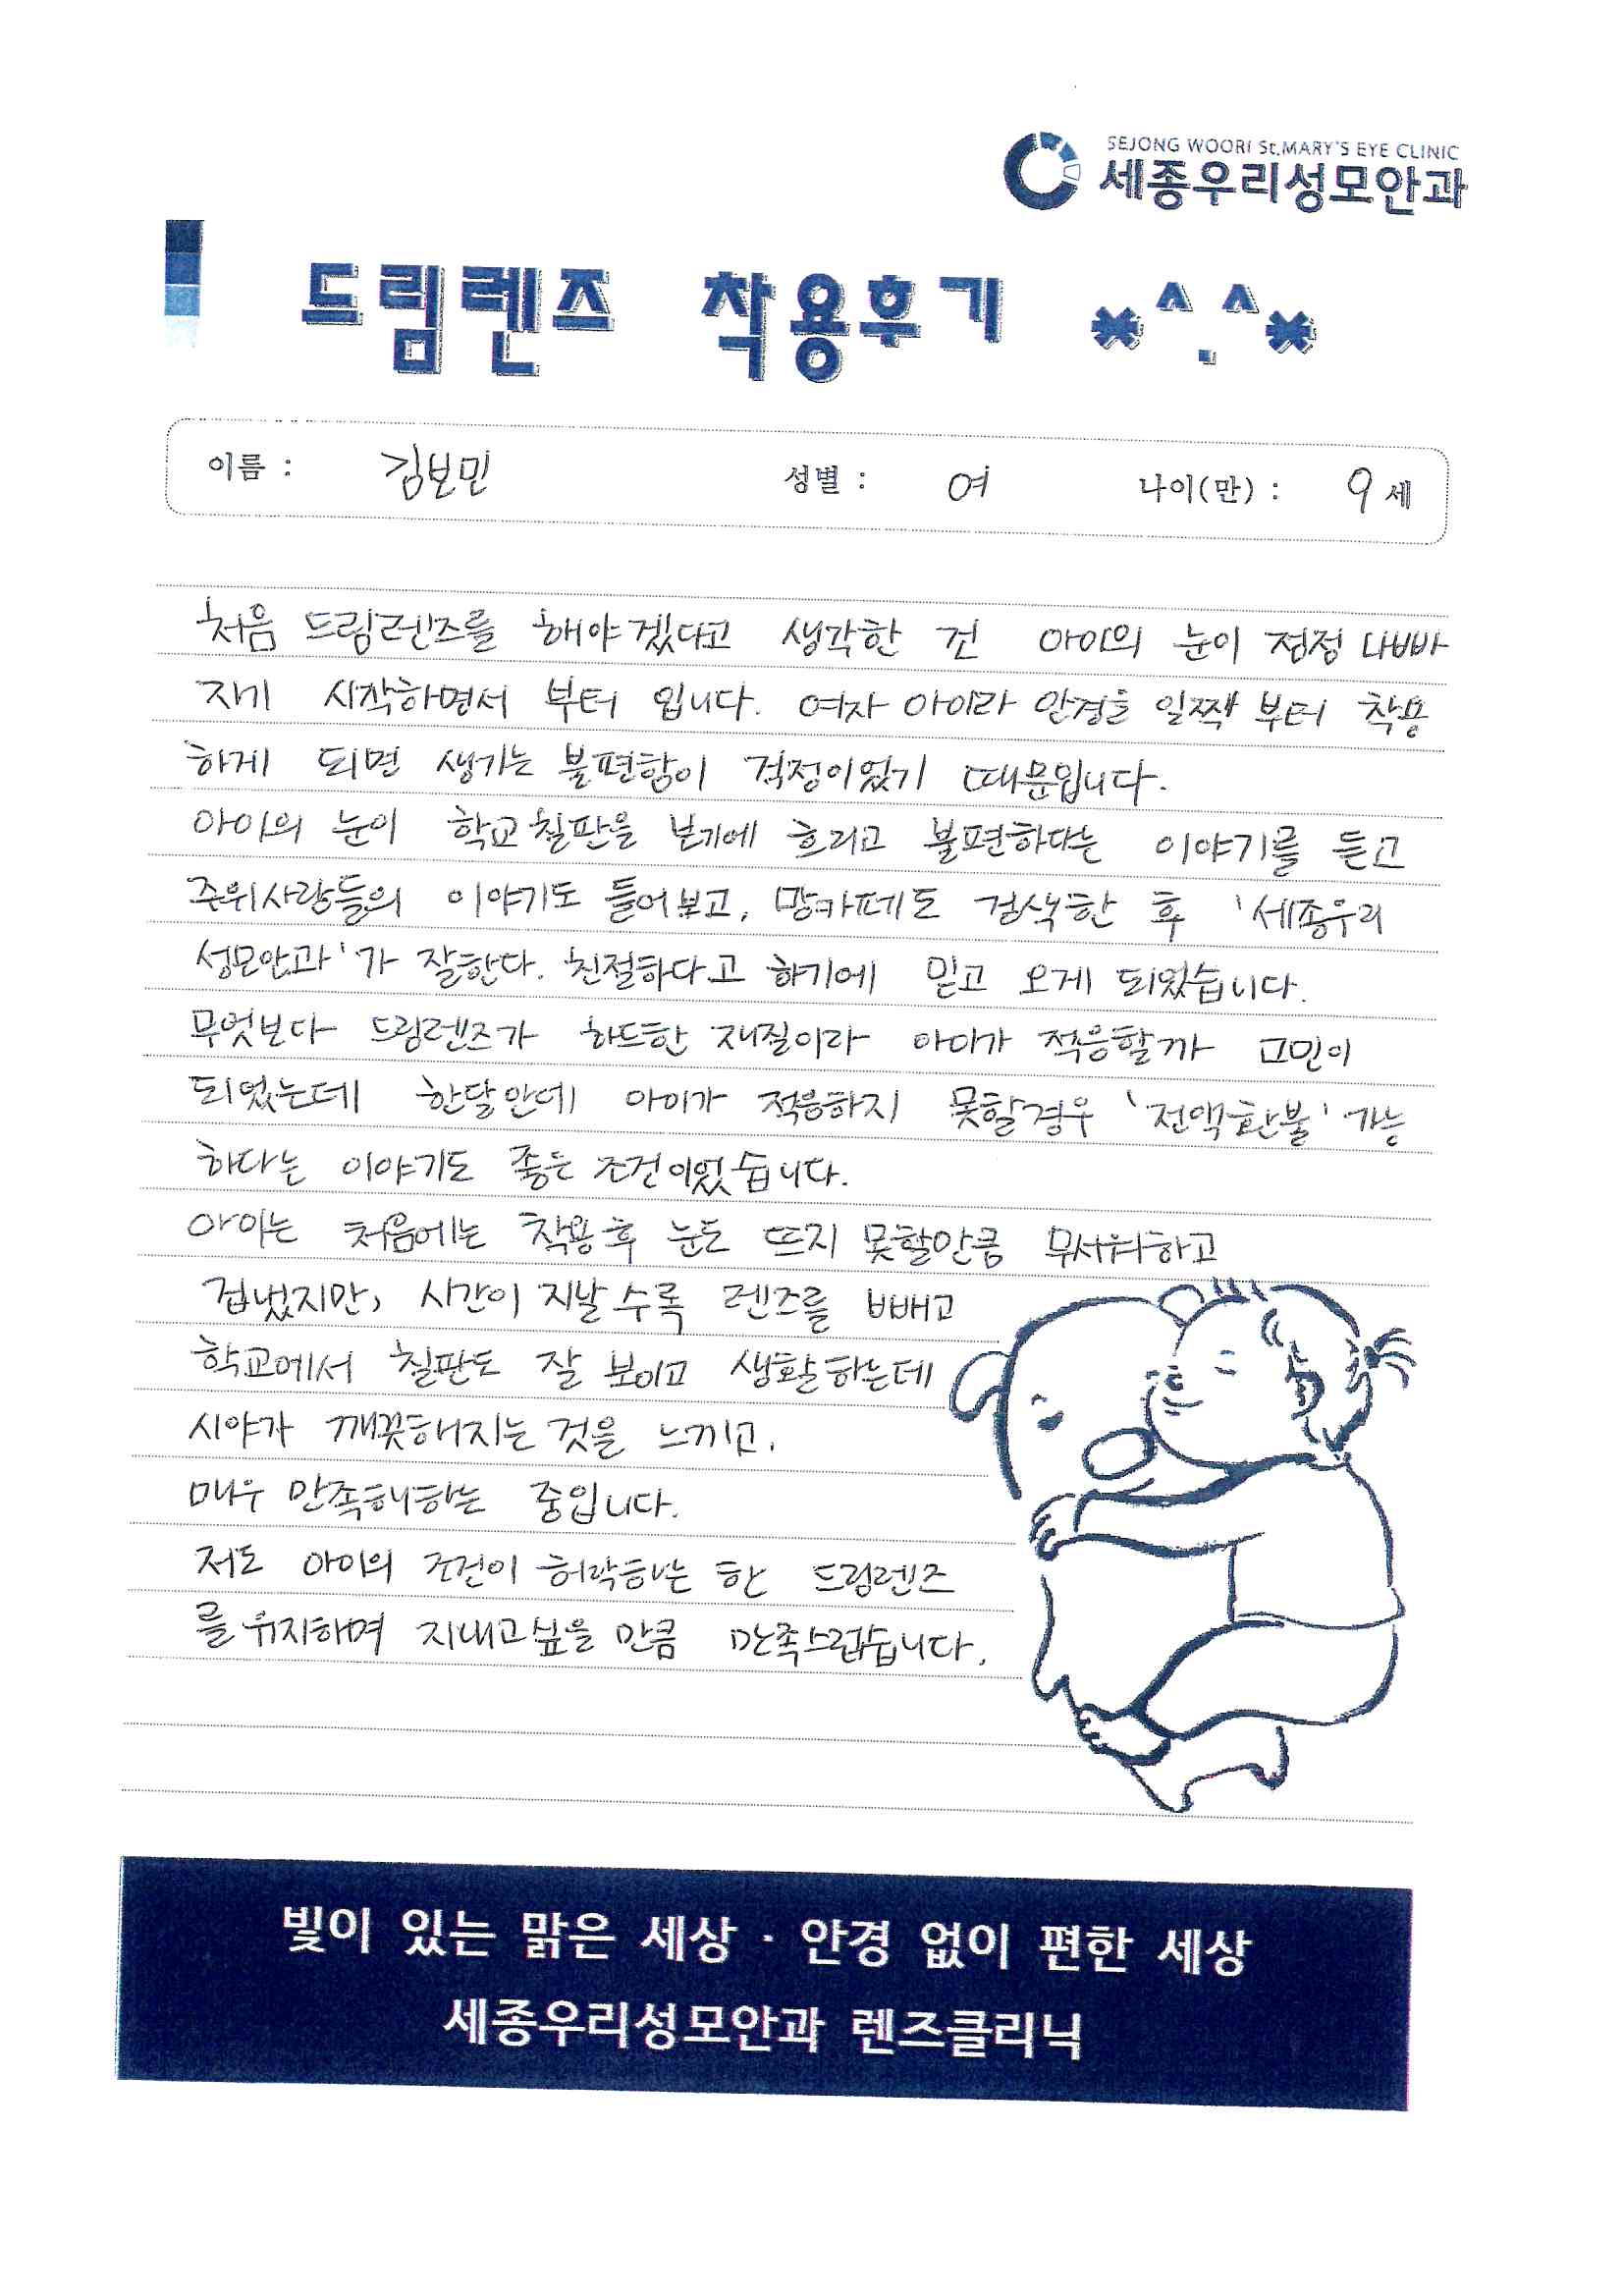 SEJONG WOORI St.MARY'S EYE CLINIC
세종우리성모안과
드림렌즈 착용후기 *^.^*
이름 : 김보민 성별 : 여 나이(만) : 9 세
처음 드림렌즈를 해야겠다고 생각한 건 아이의 눈이 점점 나빠
지기 시작하면서 부터 입니다. 여자 아이라 안경을 일찍 부터 착용
하게 되면 생기는 불편함이 걱정이었기 때문입니다.
아이의 눈이 학교칠판을 보기에 흐리고 불편하다는 이야기를 듣고
주위사람들의 이야기도 들어보고, 맘카페도 검색한 후 '세종우리
성모안과'가 잘한다. 친절하다고 하기에 믿고 오게 되었습니다.
무엇보다 드림렌즈가 하드한 재질이라 아이가 적응할까 고민이
되었는데 한달안에 아이가 적응하지 못할경우 '전액환불' 가능
하다는 이야기도 좋은 조건이었습니다.
아이는 처음에는 착용후 눈도 뜨지 못할만큼 무서워하고
겁냈지만, 시간이 지날수록 렌즈를 빼고
학교에서 칠판도 잘 보이고 생활하는데
시야가 깨끗해지는 것을 느끼고,
매우 만족해하는 중입니다.
저도 아이의 조건이 허락하는 한 드림렌즈
를 유지하며 지내고싶을 만큼 만족스럽습니다.
빛이 있는 맑은 세상 · 안경 없이 편한 세상
세종우리성모안과 렌즈클리닉